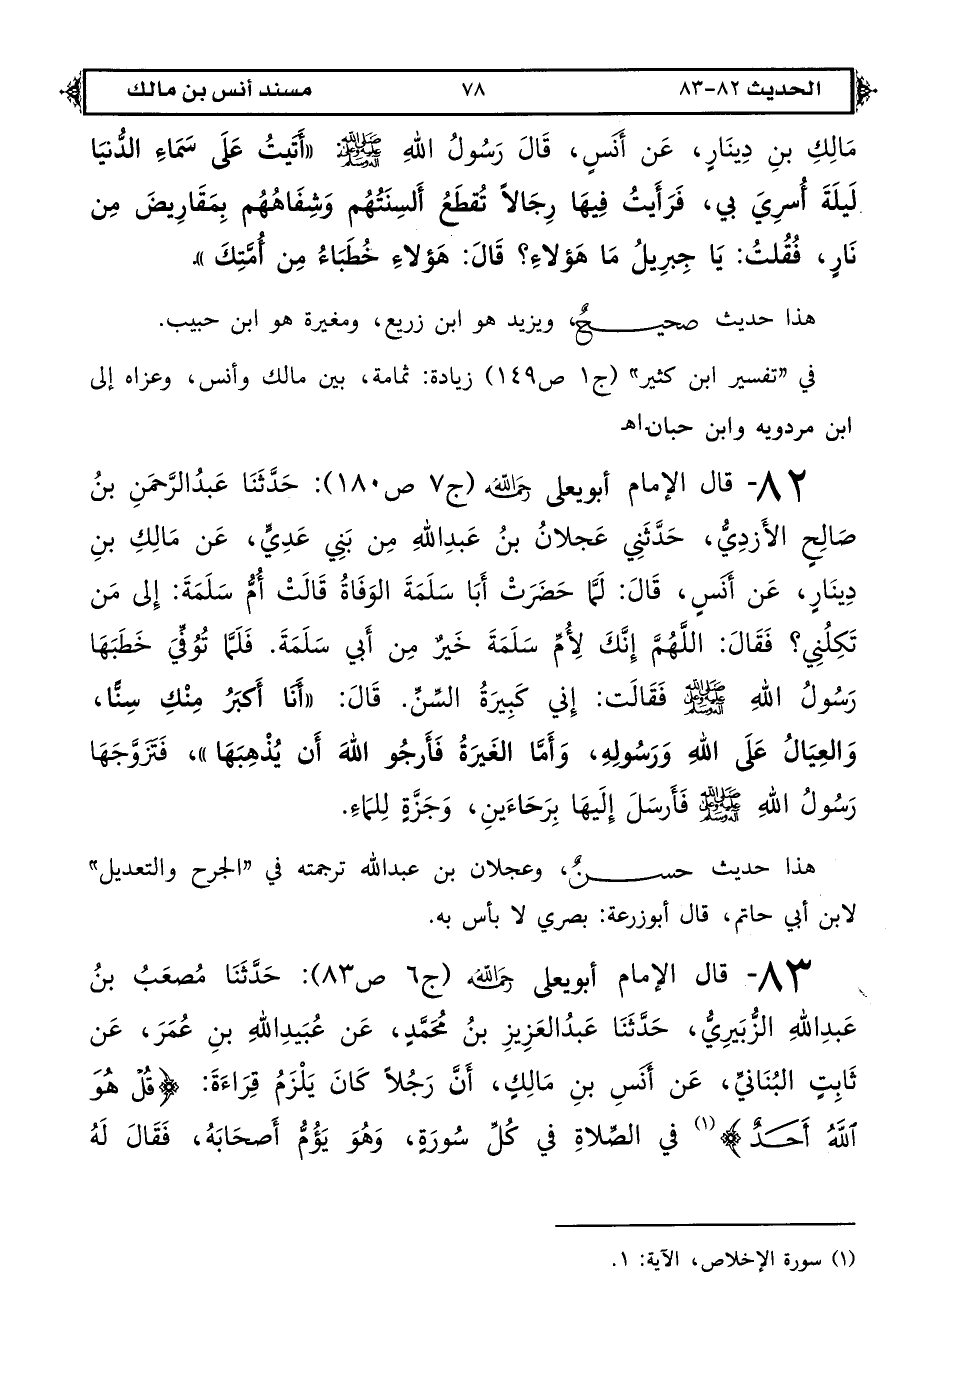 الحديث ٨٢-٨٣ ٧٨ مسند أنس بن مالك
مَالِكِ بنِ دِينَارٍ، عَن أَنَسٍ، قَالَ رَسُولُ اللهِ ﷺ: «أَتَيتُ عَلَى سَمَاءِ الدُّنيَا
لَيلَةَ أُسرِيَ بي، فَرَأَيتُ فِيهَا رِجَالاً تُقطَعُ أَلسِنَتُهُم وَشِفَاهُهُم بِمَقَارِيضَ مِن
نَارٍ، فَقُلتُ: يَا جِبرِيلُ مَا هَؤلاءِ؟ قَالَ: هَؤلاءِ خُطَبَاءُ مِن أُمَّتِكَ».
هذا حديث صحيحٌ، ويزيد هو ابن زريع، ومغيرة هو ابن حبيب.
في "تفسير ابن كثير" (ج١ ص١٤٩) زيادة: ثمامة، بين مالك وأنس، وعزاه إلى
ابن مردويه وابن حبان.اهـ
٨٢- قال الإمام أبويعلى رحمه الله (ج٧ ص١٨٠): حَدَّثَنَا عَبدُالرَّحمَنِ بنُ
صَالِحٍ الأَزدِيُّ، حَدَّثَنِي عَجلانُ بنُ عَبدِاللهِ مِن بَنِي عَدِيٍّ، عَن مَالِكِ بنِ
دِينَارٍ، عَن أَنَسٍ، قَالَ: لَمَّا حَضَرَتْ أَبَا سَلَمَةَ الوَفَاةُ قَالَتْ أُمُّ سَلَمَةَ: إِلى مَن
تَكِلُنِي؟ فَقَالَ: اللَّهُمَّ إِنَّكَ لِأُمِّ سَلَمَةَ خَيرٌ مِن أَبي سَلَمَةَ. فَلَمَّا تُوُفِّيَ خَطَبَهَا
رَسُولُ اللهِ ﷺ فَقَالَت: إِني كَبِيرَةُ السِّنِّ. قَالَ: «أَنَا أَكبَرُ مِنْكِ سِنًّا،
وَالعِيَالُ عَلَى اللهِ وَرَسُولِهِ، وَأَمَّا الغَيرَةُ فَأَرجُو اللهَ أَن يُذْهِبَهَا»، فَتَزَوَّجَهَا
رَسُولُ اللهِ ﷺ فَأَرسَلَ إِلَيهَا بِرَحَاءَينِ، وَجَرَّةٍ لِلمَاءِ.
هذا حديث حسنٌ، وعجلان بن عبدالله ترجمته في "الجرح والتعديل"
لابن أبي حاتم، قال أبوزرعة: بصري لا بأس به.
٨٣- قال الإمام أبويعلى رحمه الله (ج٦ ص٨٣): حَدَّثَنَا مُصعَبُ بنُ
عَبدِاللهِ الزُّبَيرِيُّ، حَدَّثَنَا عَبدُالعَزِيزِ بنُ مُحَمَّدٍ، عَن عُبَيدِاللهِ بنِ عُمَرَ، عَن
ثَابِتٍ البُنَانيِّ، عَن أَنَسِ بنِ مَالِكٍ، أَنَّ رَجُلاً كَانَ يَلْزَمُ قِرَاءَةَ: ﴿قُلْ هُوَ
ٱللَّهُ أَحَدٌ﴾(١) في الصَّلاةِ في كُلِّ سُورَةٍ، وَهُوَ يَؤُمُّ أَصحَابَهُ، فَقَالَ لَهُ
(١) سورة الإخلاص، الآية: ١.